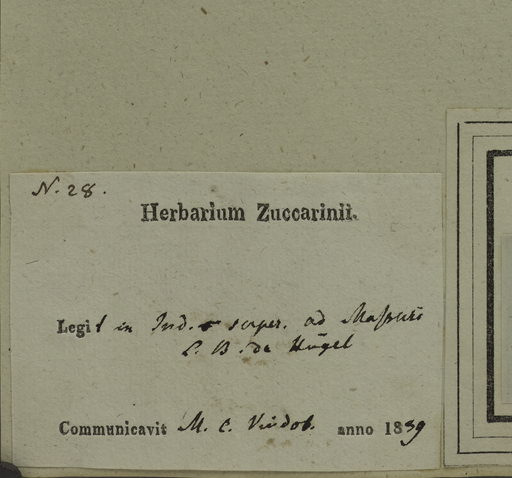 N. 28.
Herbarium Zuccarinii.
Legit in Ind. super. ad Massuri
C. B. de Hügel
Communicavit M. C. Vindob. anno 1839